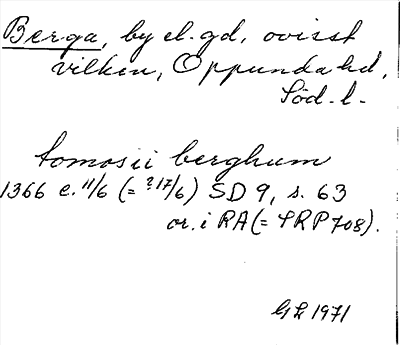 Berga, by el. gd, ovisst
vilken, Oppunda hd,
Söd. l.
tomosii berghum
1366 e. 11/6 (= ? 17/6) SD 9, s. 63
or. i RA (= SRP 708).
GL 1971